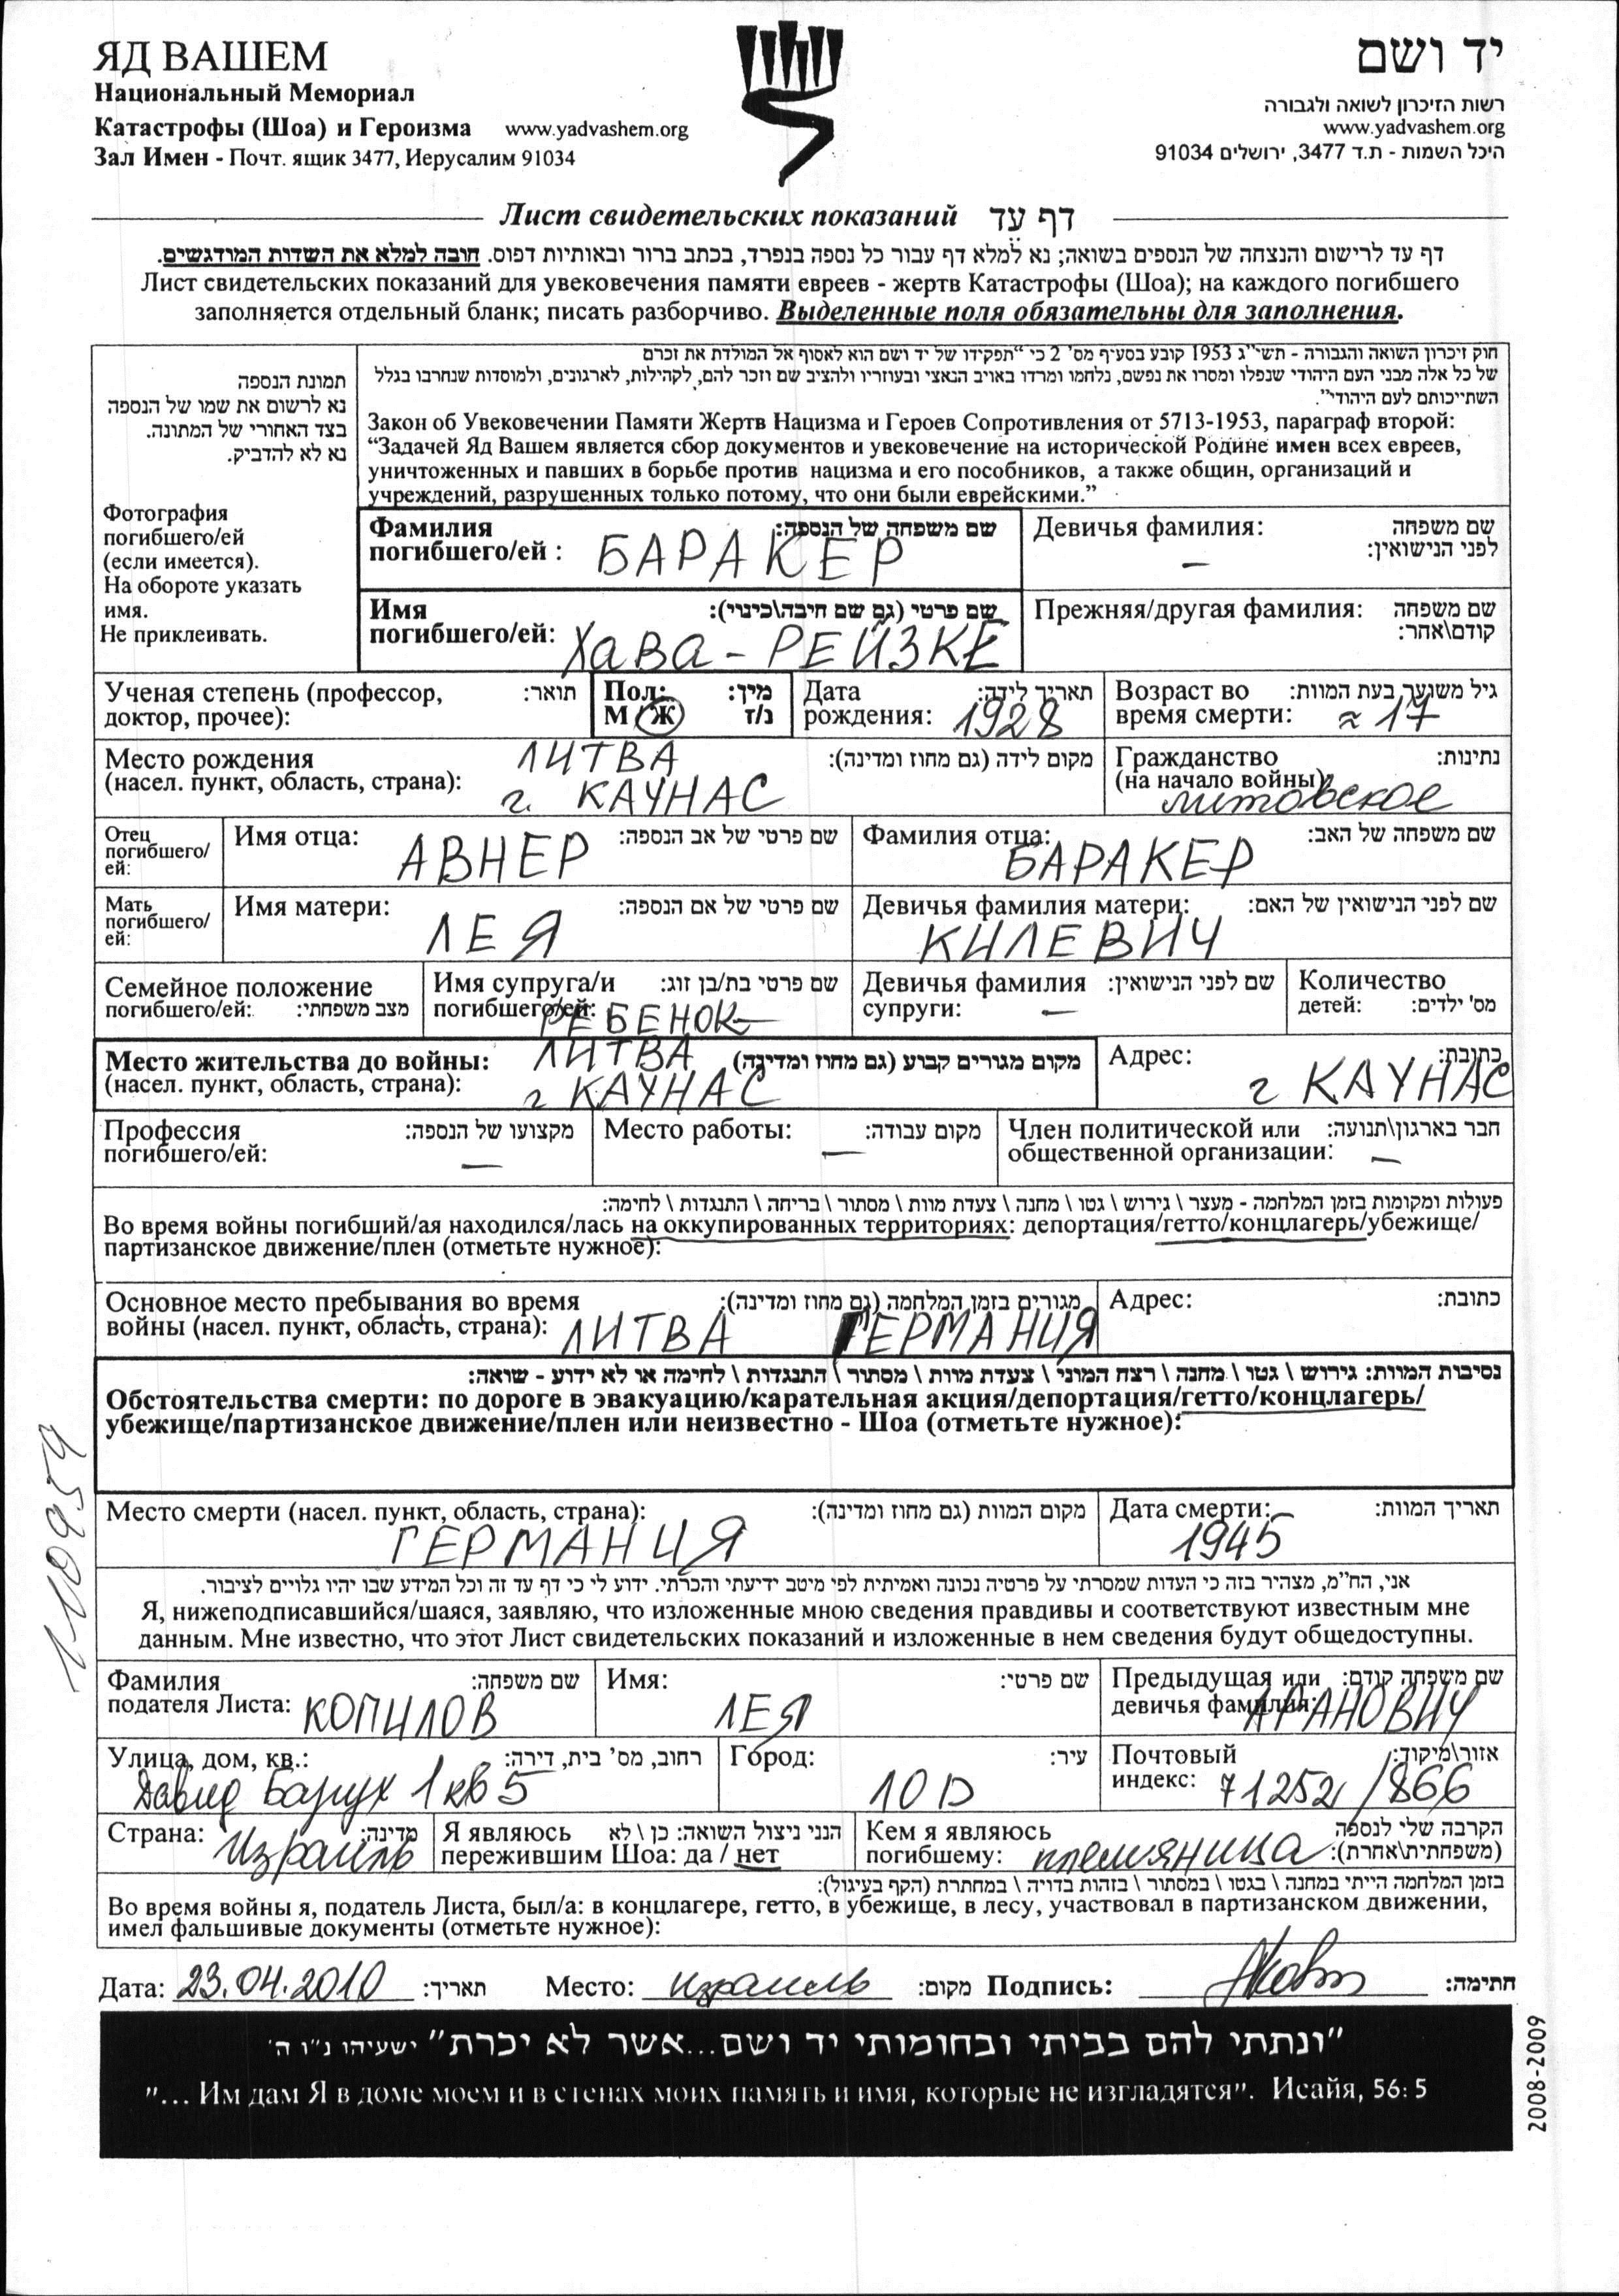 ЯД ВАШЕМ
Национальный Мемориал
Катастрофы (Шоа) и Героизма www.yadvashem.org
Зал Имен - Почт. ящик 3477, Иерусалим 91034
יד ושם
רשות הזיכרון לשואה ולגבורה
www.yadvashem.org
היכל השמות - ת.ד 3477, ירושלים 91034
Лист свидетельских показаний דף עד
דף עד לרישום והנצחה של הנספים בשואה; נא למלא דף עבור כל נספה בנפרד, בכתב ברור ובאותיות דפוס. חובה למלא את השדות המודגשים.
Лист свидетельских показаний для увековечения памяти евреев - жертв Катастрофы (Шоа); на каждого погибшего
заполняется отдельный бланк; писать разборчиво. Выделенные поля обязательны для заполнения.
תמונת הנספה
נא לרשום את שמו של הנספה
בצד האחורי של המתונה.
נא לא להדביק.
Фотография
погибшего/ей
(если имеется).
На обороте указать
имя.
Не приклеивать.
חוק זיכרון השואה והגבורה - תשי"ג 1953 קובע בסעיף מס' 2 כי "תפקידו של יד ושם הוא לאסוף אל המולדת את זכרם
של כל אלה מבני העם היהודי שנפלו ומסרו את נפשם, נלחמו ומרדו באויב הנאצי ובעוזריו ולהציב שם וזכר להם, לקהילות, לארגונים, ולמוסדות שנחרבו בגלל
השתייכותם לעם היהודי".
Закон об Увековечении Памяти Жертв Нацизма и Героев Сопротивления от 5713-1953, параграф второй:
“Задачей Яд Вашем является сбор документов и увековечение на исторической Родине имен всех евреев,
уничтоженных и павших в борьбе против нацизма и его пособников, а также общин, организаций и
учреждений, разрушенных только потому, что они были еврейскими.”
Фамилия שם משפחה של הנספה:
погибшего/ей : БАРАКЕР
Девичья фамилия: שם משפחה
לפני הנישואין:
–
Имя שם פרטי (גם שם חיבה\כינוי):
погибшего/ей: Хава - РЕЙЗКЕ
Прежняя/другая фамилия: שם משפחה
קודם\אחר:
Ученая степень (профессор, תואר:
доктор, прочее):
Пол: מין:
М / Ж נ/ז
Дата תאריך לידה:
рождения: 1928
Возраст во גיל משוער בעת המוות:
время смерти: ≈ 17
Место рождения ЛИТВА מקום לידה (גם מחוז ומדינה):
(насел. пункт, область, страна): г. КАУНАС
Гражданство נתינות:
(на начало войны): литовское
Отец
погибшего/
ей:
Имя отца: АВНЕР שם פרטי של אב הנספה:
Фамилия отца: БАРАКЕР שם משפחה של האב:
Мать
погибшего/
ей:
Имя матери: ЛЕЯ שם פרטי של אם הנספה:
Девичья фамилия матери: КИЛЕВИЧ שם לפני הנישואין של האם:
Семейное положение
погибшего/ей: מצב משפחתי:
Имя супруга/и שם פרטי בת/בן זוג:
погибшего/ей: РЕБЕНОК –
Девичья фамилия שם לפני הנישואין:
супруги: –
Количество
детей: מס' ילדים:
Место жительства до войны: ЛИТВА מקום מגורים קבוע (גם מחוז ומדינה)
(насел. пункт, область, страна): г КАУНАС
Адрес: כתובת:
г КАУНАС
Профессия מקצועו של הנספה:
погибшего/ей: –
Место работы: מקום עבודה:
–
Член политической или חבר בארגון\תנועה:
общественной организации: –
פעולות ומקומות בזמן המלחמה - מעצר \ גירוש \ גטו \ מחנה \ צעדת מוות \ מסתור \ בריחה \ התנגדות \ לחימה:
Во время войны погибший/ая находился/лась на оккупированных территориях: депортация/гетто/концлагерь/убежище/
партизанское движение/плен (отметьте нужное):
Основное место пребывания во время מגורים בזמן המלחמה (גם מחוז ומדינה):
войны (насел. пункт, область, страна): ЛИТВА ГЕРМАНИЯ
Адрес: כתובת:
נסיבות המוות: גירוש \ גטו \ מחנה \ רצח המוני \ צעדת מוות \ מסתור \ התנגדות \ לחימה או לא ידוע - שואה:
Обстоятельства смерти: по дороге в эвакуацию/карательная акция/депортация/гетто/концлагерь/
убежище/партизанское движение/плен или неизвестно - Шоа (отметьте нужное):
Место смерти (насел. пункт, область, страна): מקום המוות (גם מחוז ומדינה):
ГЕРМАНИЯ
Дата смерти: תאריך המוות:
1945
אני, הח"מ, מצהיר בזה כי העדות שמסרתי על פרטיה נכונה ואמיתית לפי מיטב ידיעתי והכרתי. ידוע לי כי דף עד זה וכל המידע שבו יהיו גלויים לציבור.
Я, нижеподписавшийся/шаяся, заявляю, что изложенные мною сведения правдивы и соответствуют известным мне
данным. Мне известно, что этот Лист свидетельских показаний и изложенные в нем сведения будут общедоступны.
Фамилия שם משפחה:
подателя Листа: КОПИЛОВ
Имя: שם פרטי:
ЛЕЯ
Предыдущая или שם משפחה קודם:
девичья фамилия: АРАНОВИЧ
Улица, дом, кв.: רחוב, מס' בית, דירה:
Давид Барух 1 кв 5
Город: עיר:
ЛОД
Почтовый אזור\מיקוד:
индекс: 71252/866
Страна: מדינה:
Израиль
Я являюсь הנני ניצול השואה: כן \ לא
пережившим Шоа: да / нет
Кем я являюсь הקרבה שלי לנספה
погибшему: племяница (משפחתית\אחרת):
בזמן המלחמה הייתי במחנה \ בגטו \ במסתור \ בזהות בדויה \ במחתרת (הקף בעיגול):
Во время войны я, податель Листа, был/а: в концлагере, гетто, в убежище, в лесу, участвовал в партизанском движении,
имел фальшивые документы (отметьте нужное):
Дата: 23.04.2010 תאריך: Место: израиль מקום: Подпись: חתימה:
"ונתתי להם בביתי ובחומותי יד ושם...אשר לא יכרת" ישעיהו נ"ו ה'
"... Им дам Я в доме моем и в стенах моих память и имя, которые не изгладятся". Исайя, 56: 5
2008-2009